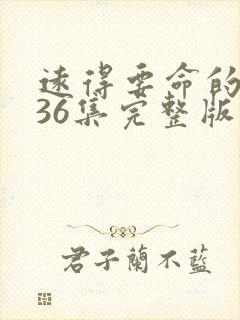 速得要命的
36集完整版
君子蘭不藍